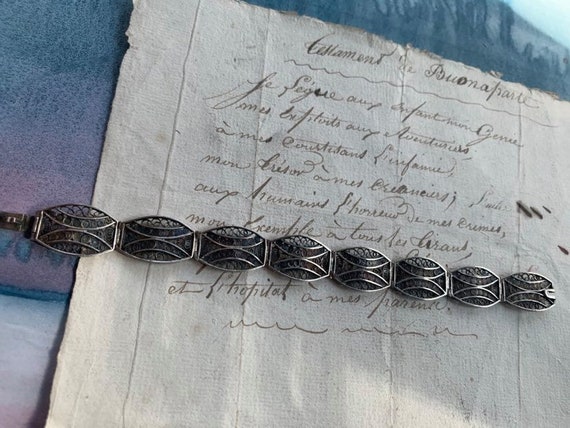 Testament de Buonaparte
Je Lègue aux enfant mon Genie
mes Exploits aux Aventuriers
à mes Courtisans L'infamie,
mon trésor à mes créanciers;
aux humains l'horreur de mes crimes,
mon Exemple à tous les tirans,
et l'hopital à mes parens.